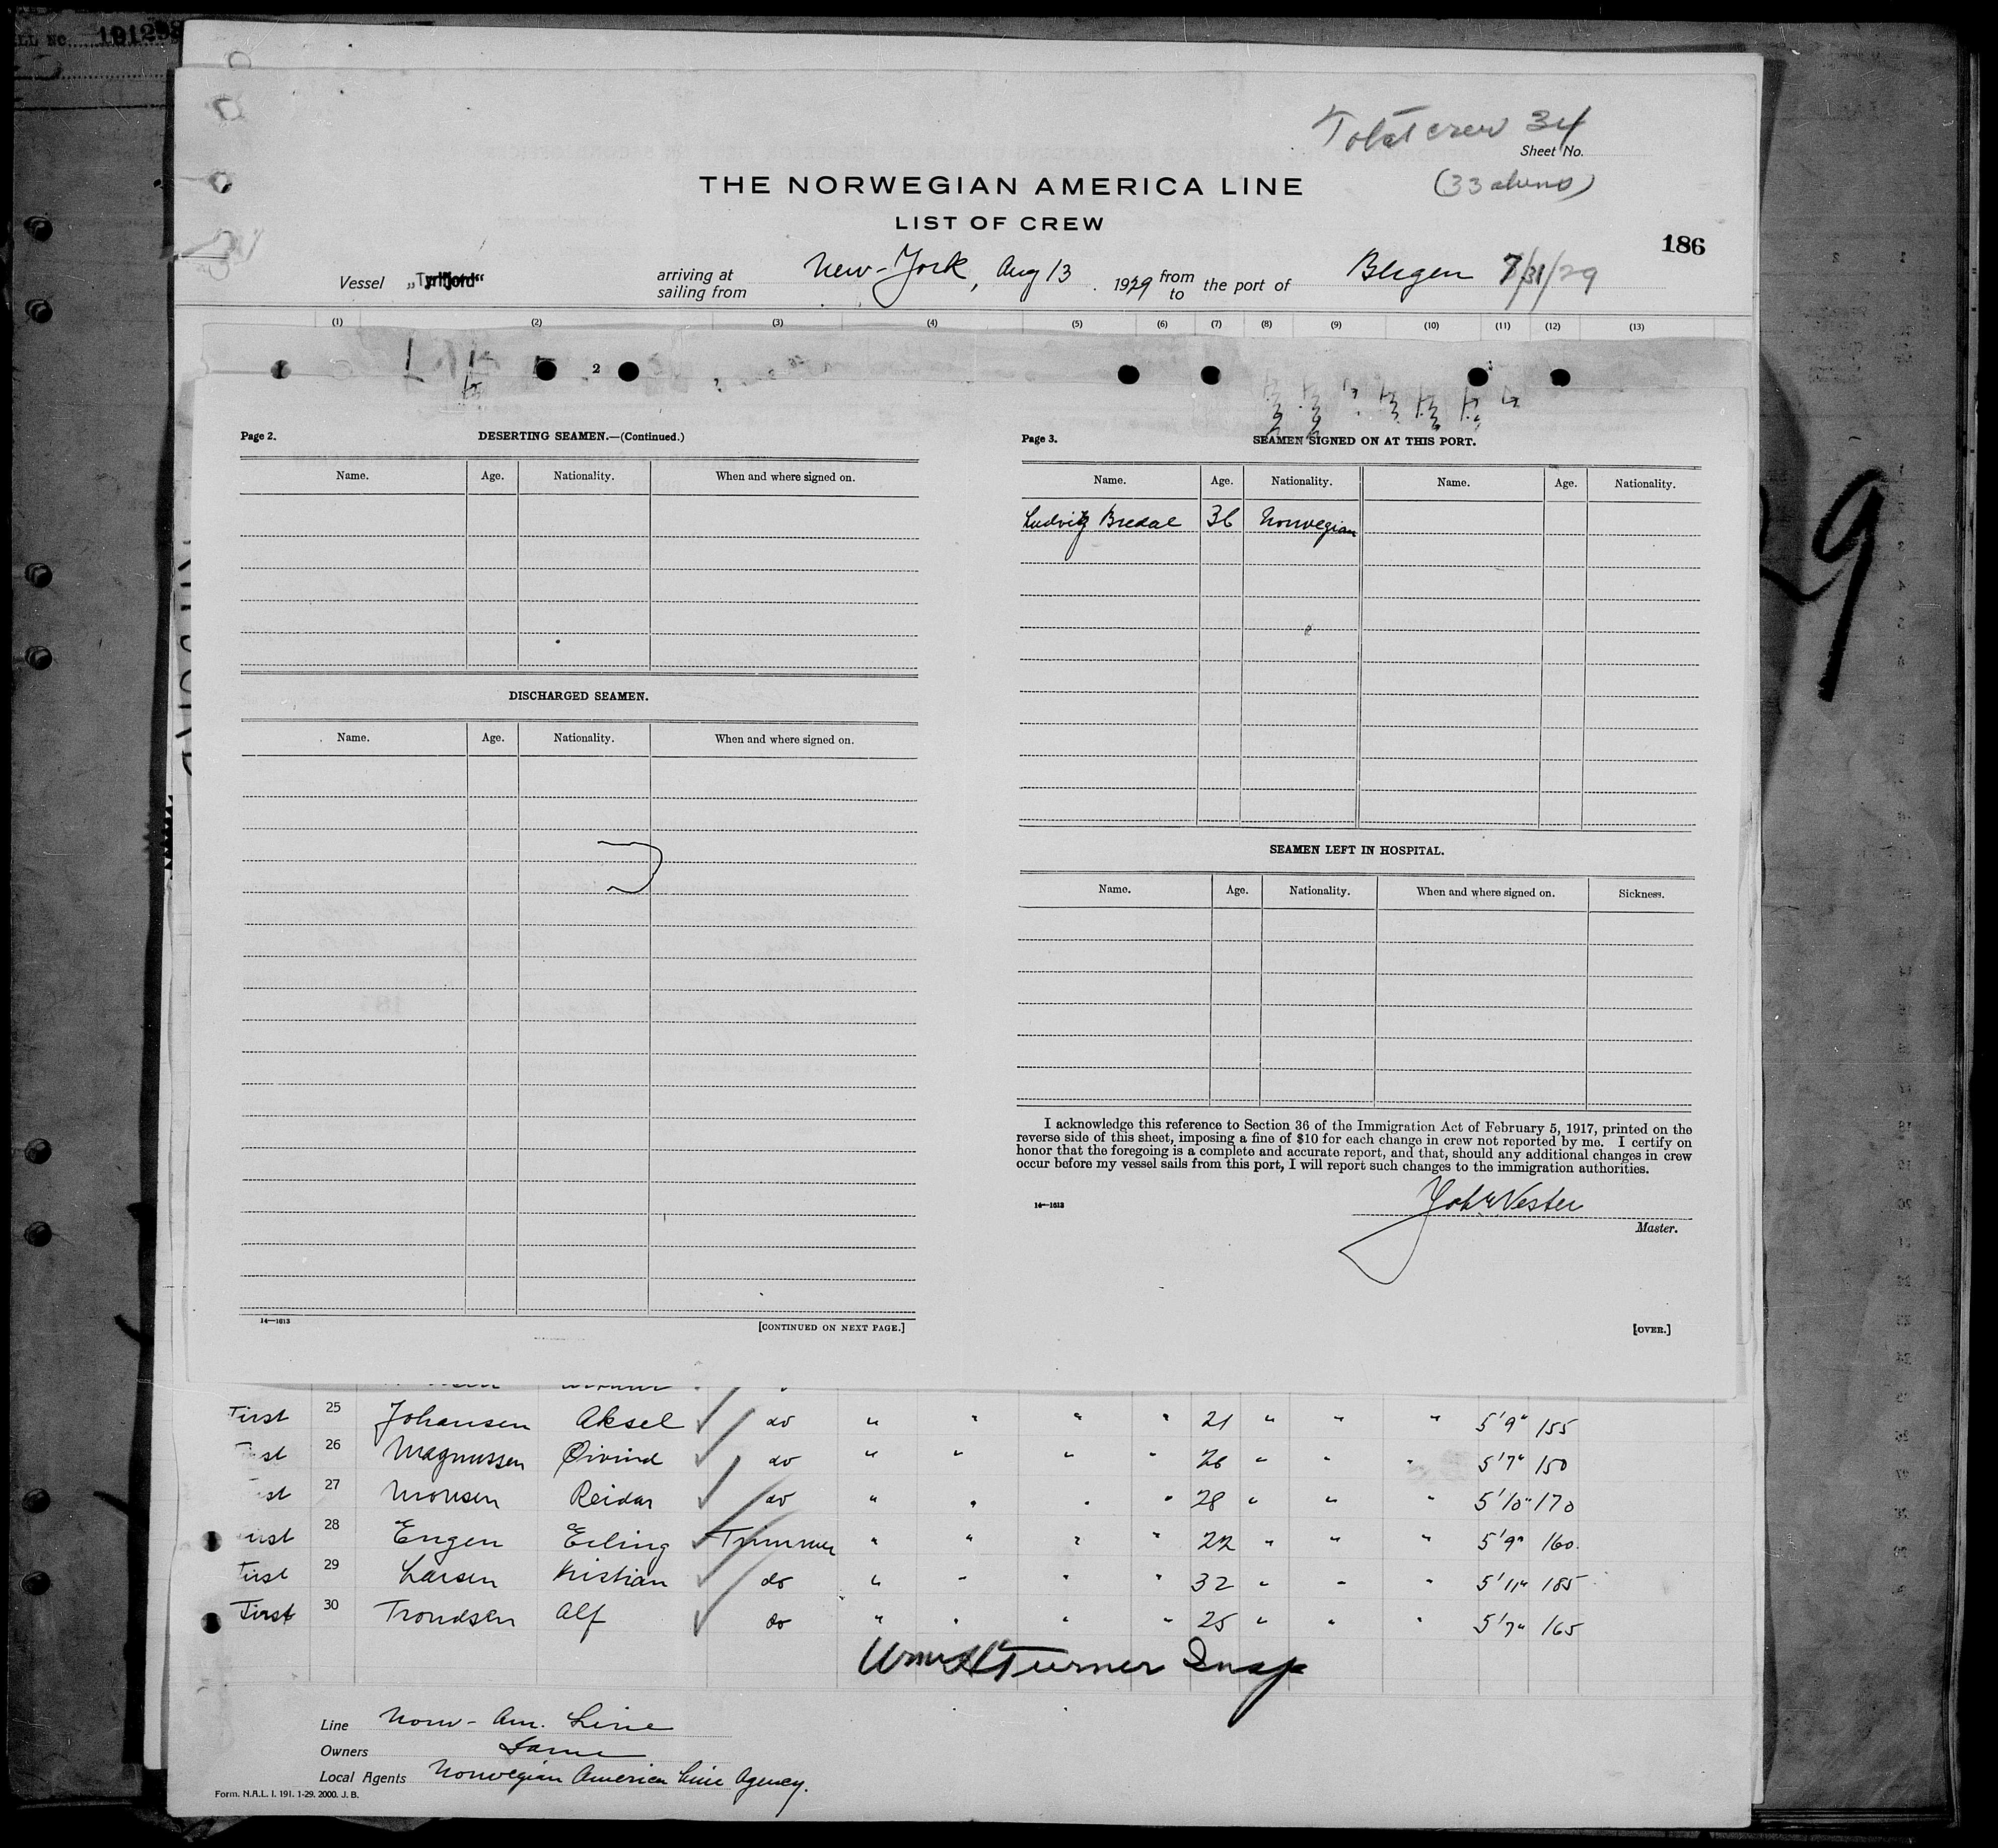 Total crew 34
Sheet No.
(33 aliens)
THE NORWEGIAN AMERICA LINE
LIST OF CREW
186
Vessel „Tyrifjord“ arriving at sailing from New-York, Aug 13. 1929 from to the port of Bergen 7/31/29
(1) (2) (3) (4) (5) (6) (7) (8) (9) (10) (11) (12) (13)
2
Page 2. DESERTING SEAMEN.—(Continued.)
Name. Age. Nationality. When and where signed on.
DISCHARGED SEAMEN.
Name. Age. Nationality. When and where signed on.
14—1613 [CONTINUED ON NEXT PAGE.]
Page 3. SEAMEN SIGNED ON AT THIS PORT.
Name. Age. Nationality. Name. Age. Nationality.
Ludvig Bredal 36 Norwegian
SEAMEN LEFT IN HOSPITAL.
Name. Age. Nationality. When and where signed on. Sickness.
I acknowledge this reference to Section 36 of the Immigration Act of February 5, 1917, printed on the
reverse side of this sheet, imposing a fine of $10 for each change in crew not reported by me. I certify on
honor that the foregoing is a complete and accurate report, and that, should any additional changes in crew
occur before my vessel sails from this port, I will report such changes to the immigration authorities.
14—1613
Joh Vester
Master.
[OVER.]
First 25 Johansen Aksel do " " " " 21 " " " 5'9" 155
st 26 Magnussen Øivind do " " " " 26 " " " 5'7" 150
st 27 Monsen Reidar do " " " " 28 " " " 5'10" 170
irst 28 Engen Erling Trimmer " " " " 22 " " " 5'9" 160
First 29 Larsen Kristian do " " " " 32 " " " 5'11" 185
First 30 Trondsen Alf do " " " " 25 " " " 5'7" 165
Wm H Turner Insp
Line Norw-Am. Line
Owners Same
Local Agents Norwegian America Line Agency.
Form. N.A.L. I. 191. 1-29. 2000. J. B.